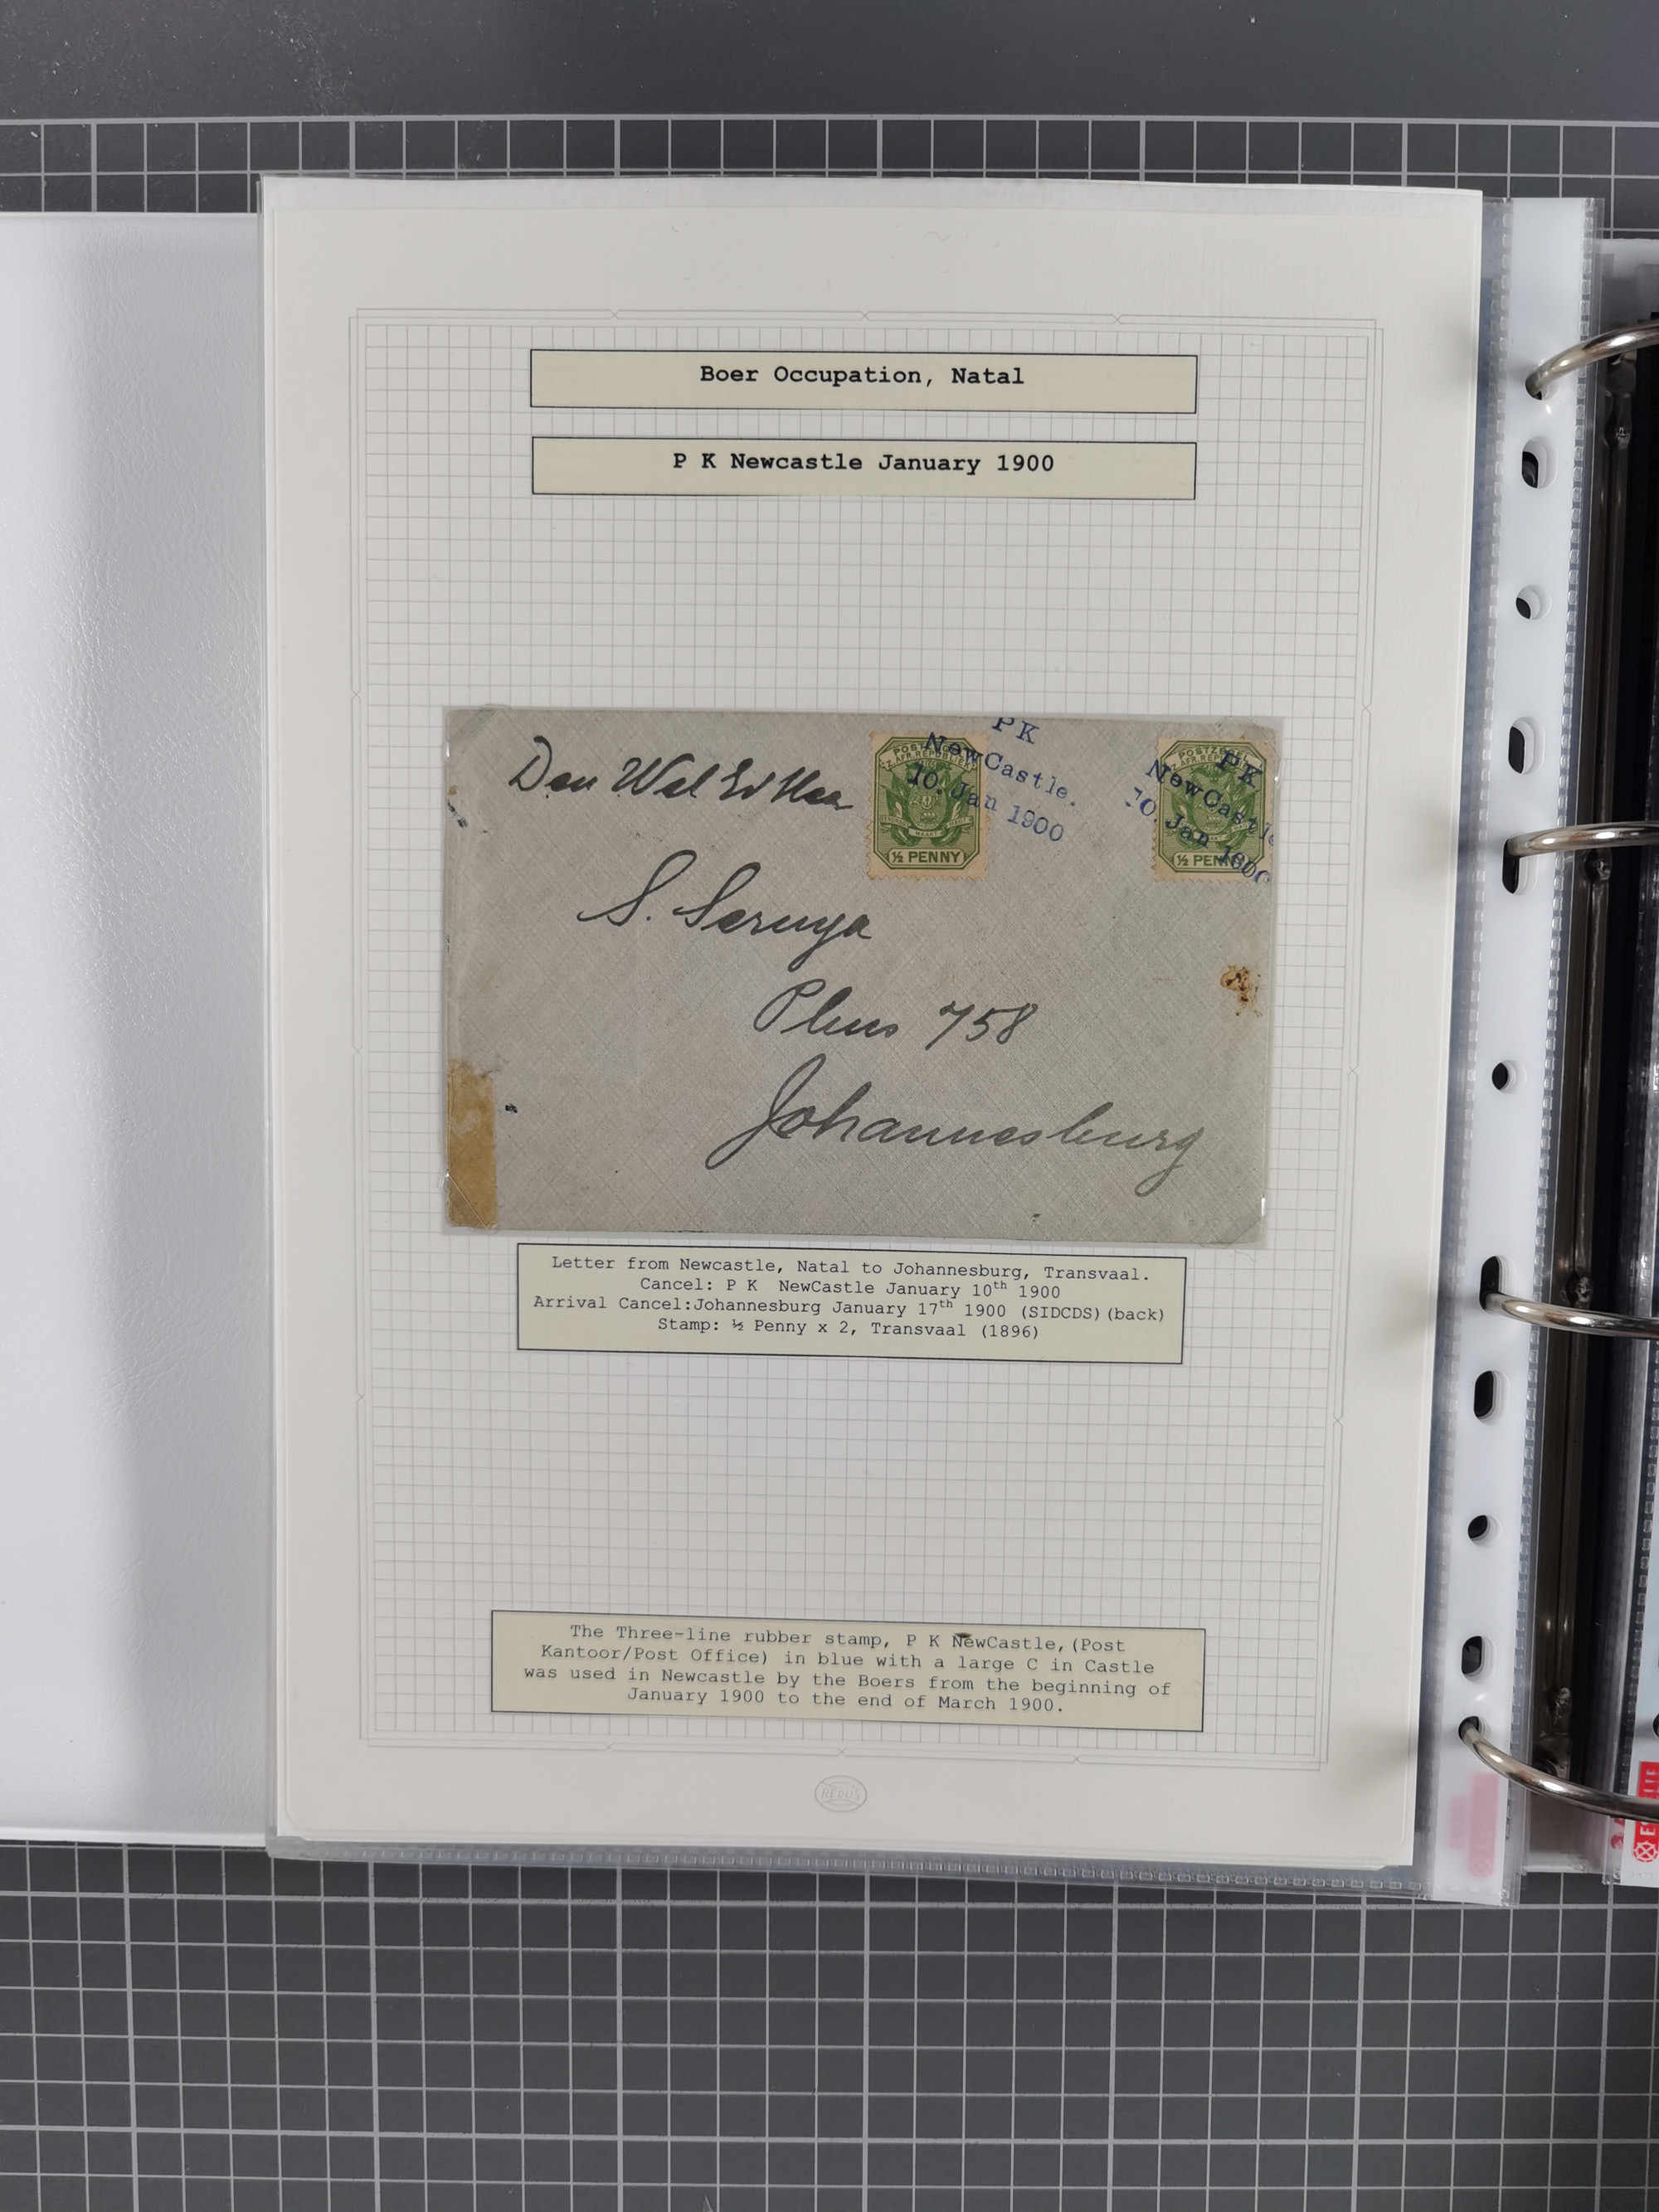 Boer Occupation, Natal
P K Newcastle January 1900
Den Wel Ed Heer
S. Seruya
PK
NewCastle.
10. Jan 1900
POSTZEGEL
Z. AFR. REPUBLIEK
½ PENNY
PK
NewCastle
10. Jan 1900
POSTZEGEL
Z. AFR. REPUBLIEK
½ PENNY
758
Johannesburg
Letter from Newcastle, Natal to Johannesburg, Transvaal.
Cancel: P K NewCastle January 10th 1900
Arrival Cancel:Johannesburg January 17th 1900 (SIDCDS)(back)
Stamp: ½ Penny x 2, Transvaal (1896)
The Three-line rubber stamp, P K NewCastle,(Post
Kantoor/Post Office) in blue with a large C in Castle
was used in Newcastle by the Boers from the beginning of
January 1900 to the end of March 1900.